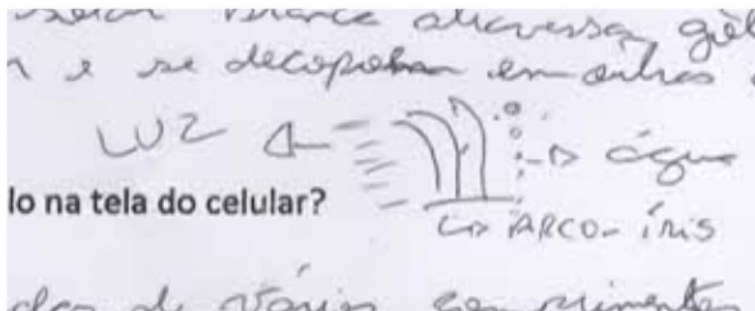 solar branca atravessa
e se decopoham em outras
LUZ
água
lo na tela do celular?
ARCO-ÍRIS
de vários comprimentos